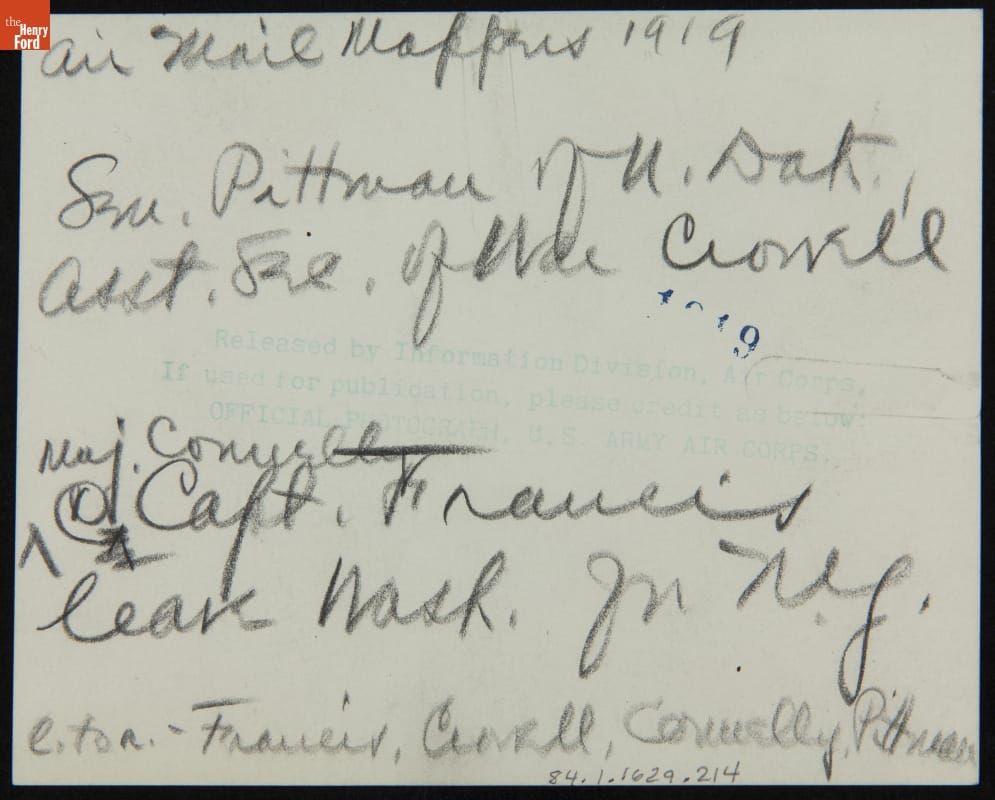 the
Henry
Ford
Air Mail Mappers 1919
Sen. Pittman of N. Dak.,
Asst. Sec. of War Crowell
1919
Released by Information Division, Air Corps.
If used for publication, please credit as below:
OFFICIAL PHOTOGRAPH, U.S. ARMY AIR CORPS.
Maj. Connelly
Capt. Francis
leave Wash. for N.Y.
l. to r. - Francis, Crowell, Connelly, Pittman
84.1.1629.214